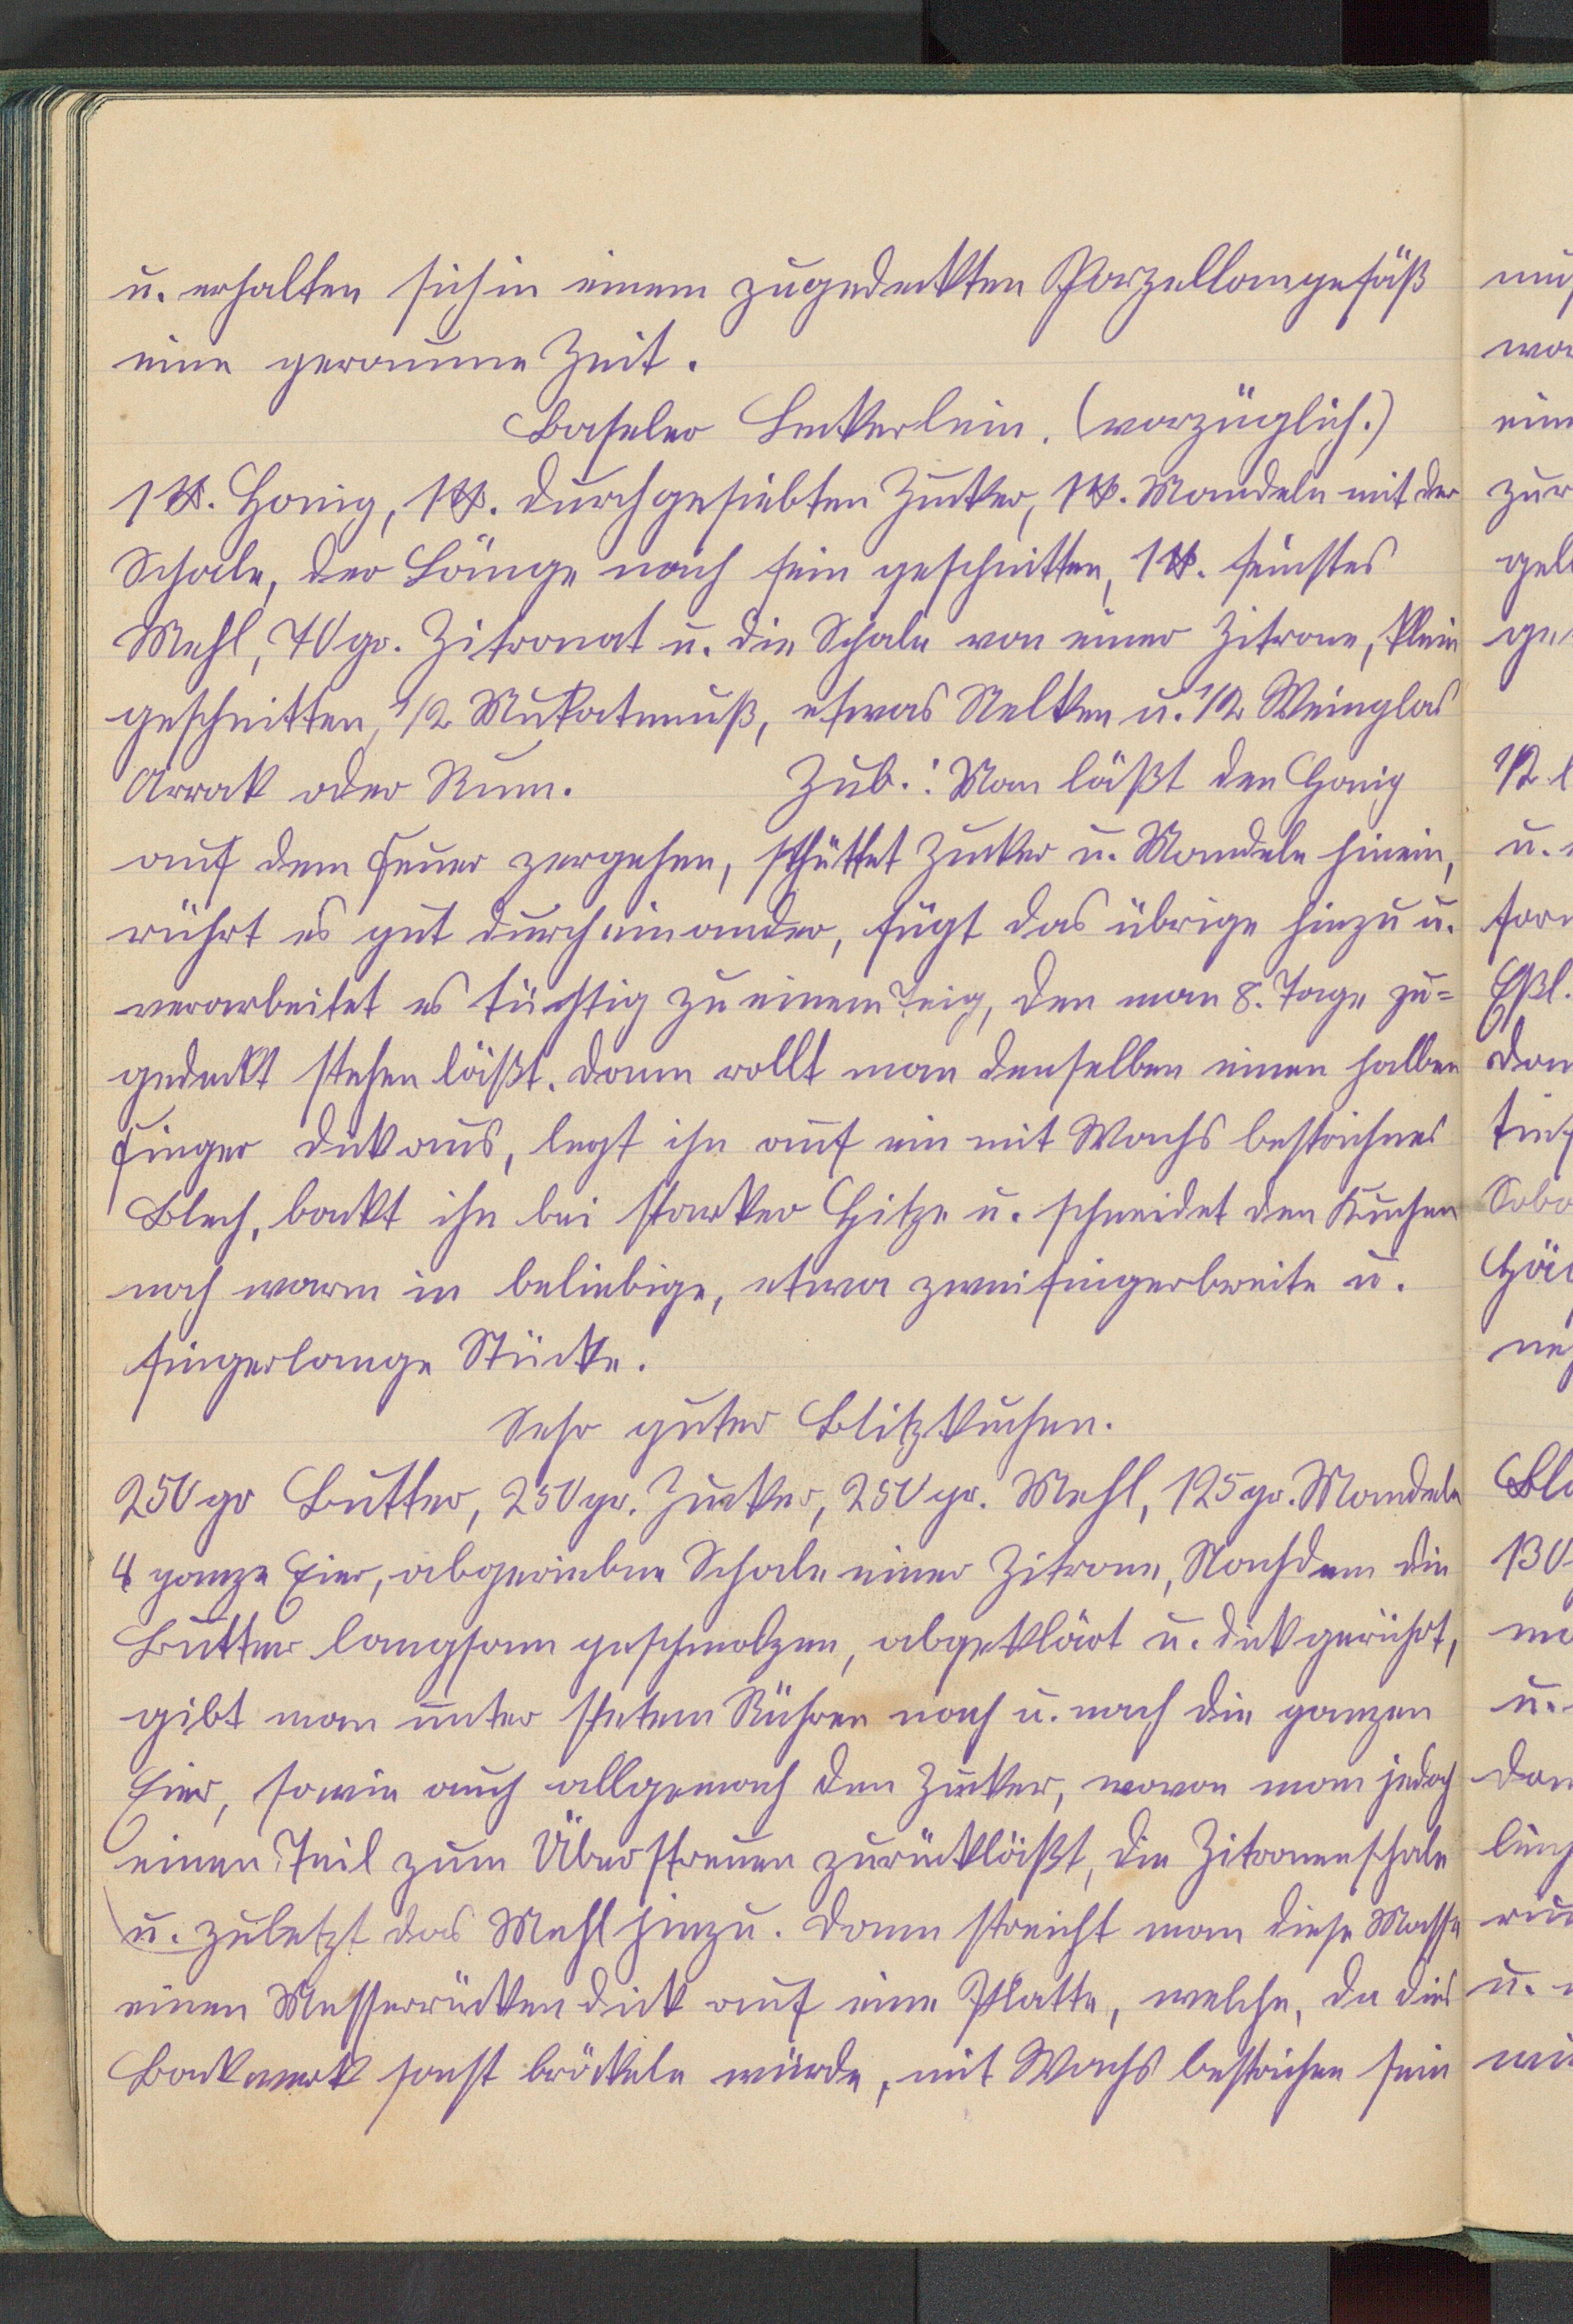 u. erhalten sich in einem zugedeckten Porzellangefäß
eine geraume Zeit.
Baseler Leckerlein. (vorzüglich.)
1 ℔. Honig, 1 ℔. durchgesiebten Zucker, 1 ℔. Mandeln mit der
Schale, der Länge nach fein geschnitten, 1 ℔. feinstes
Mehl, 70 gr. Zitronat u. die Schale von einer Zitrone, klein
geschnitten, 1/2 Mukatnuß, etwas Nelken u. 1/2 Weinglas
Arrak oder Rum. Zub.: Man läßt den Honig
auf dem Feuer zergehen, schüttet Zucker u. Mandeln hinein,
rührt es gut durcheinander, fügt das übrige hinzu u.
verarbeitet es tüchtig zu einem Teig, den man 8. Tage zu=
gedeckt stehen läßt. Dann rollt man denselben einen halben
Finger dick aus, legt ihn auf ein mit Wachs bestrichnes
Blech, backt ihn bei starker Hitze u. schneidet den Kuchen
noch warm in beliebige, etwa zweifingerbreite u.
fingerlange Stücke.
Sehr guter Blitzkuchen.
250 gr Butter, 250 gr. Zucker, 250 gr. Mehl, 125 gr. Mandeln
4 ganze Eier, abgeriebne Schale einer Zitrone, Nachdem die
Butter langsam geschmolzen, abgeklärt u. dick gerührt,
gibt man unter stetem Rühren nach u. nach die ganzen
Eier, sowie auch allgemach den Zucker, wovon man jedoch
einen Teil zum Überstreuen zurückläßt, die Zitronenschale
u. zuletzt das Mehl hinzu. Dann streicht man diese Masse
einen Messerrücken dick auf eine Platte, welche, da dies
Backwerk sonst bröckeln würde, mit Wachs bestrichen sein